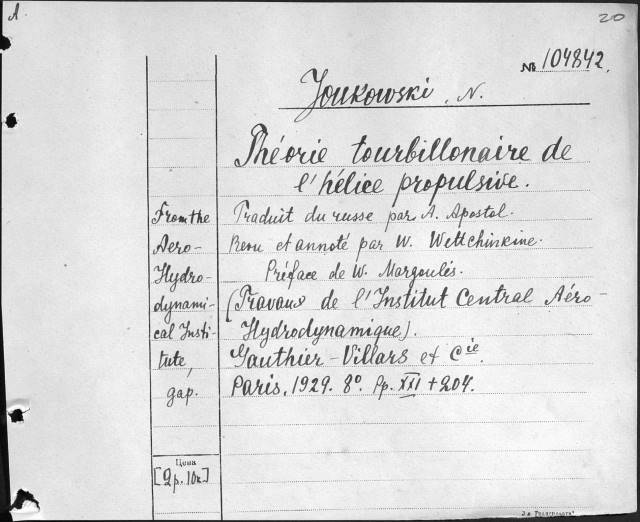 A
20
№ 104842.
Joukowski, N.
Théorie tourbillonaire de
l'hélice propulsive.
Traduit du russe par A. Apostol.
Revu et annoté par W. Wettchinkine.
Préface de W. Margoulés.
(Travaux de l'Institut Central Aéro-
Hydrodynamique).
Gauthier-Villars et Cie.
Paris, 1929. 8°. Pp. XXI + 204.
From the
Aero-
Hydro-
dynami-
cal Insti-
tute,
gap.
Цѣна
[2р. 10к]